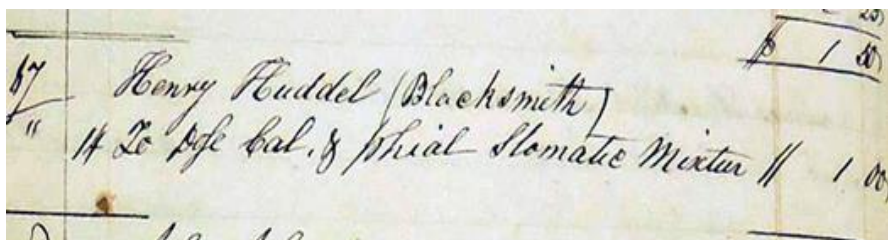 25
$ 1 50
67 Henry Huddel (Blacksmith)
" 14 To Dose Cal. & phial Stomatic Mixtur " 1 00